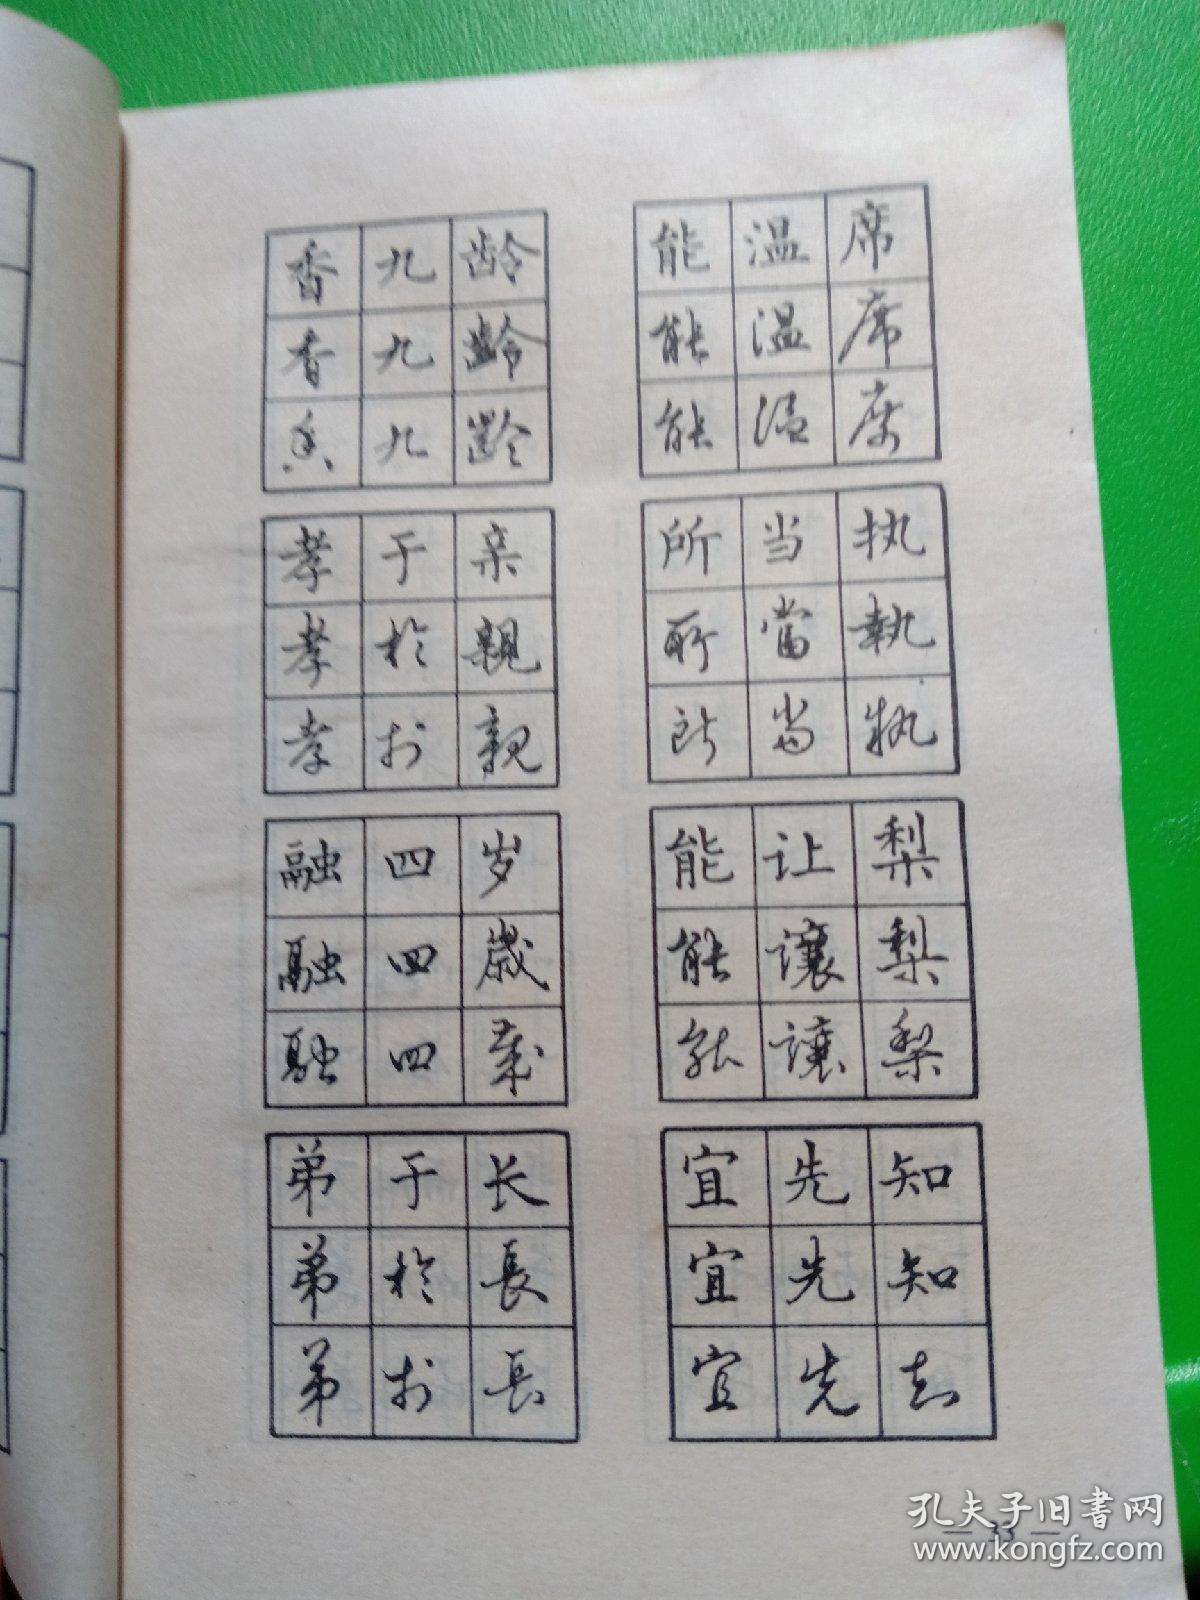 香九龄 能温席
香九齡 能温席
香九齡 能温席
孝于亲 所当执
孝於親 所當執
孝於親 所当执
融四岁 能让梨
融四歲 能讓梨
融四歲 能讓梨
弟于长 宜先知
弟於長 宜先知
弟於長 宜先知
— 33 —
孔夫子旧书网
www.kongfz.com